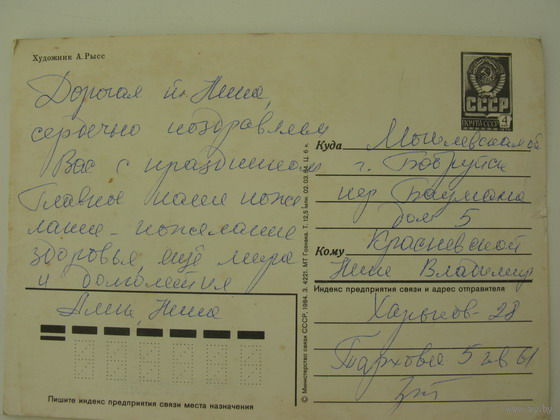 Художник А. Рысс
ПОЧТА СССР
4
Дорогая Нина,
сердечно поздравляем
Вас с праздником
Главное наше поже-
лание - пожелание
здоровья, ещё мира
и долголетия
Нина
Куда Могилевская об
г. Бобруйск
пер Баумана
дом 5
Кому Красневской
Нине Владимир
Индекс предприятия связи и адрес отправителя
Харьков - 28
Тархова 5 кв 61
Пишите индекс предприятия связи места назначения
© Министерство связи СССР, 1984. З. 4221. МТ Гознака. Т. 12,5 млн. 02.03.84. Ц. 6 к.